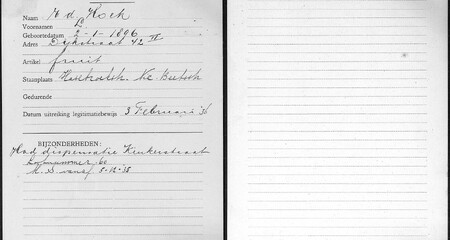 Naam v d Koek
Voornamen L
Geboortedatum 2-1-1896
Adres Dijkstraat 42 II
Artikel fruit
Staanplaats
Gedurende
Datum uitreiking legitimatiebewijs 3 Februari '36
BIJZONDERHEDEN:
Had dispensatie Kinkerstraat
M. D. vanaf 8-02-'38